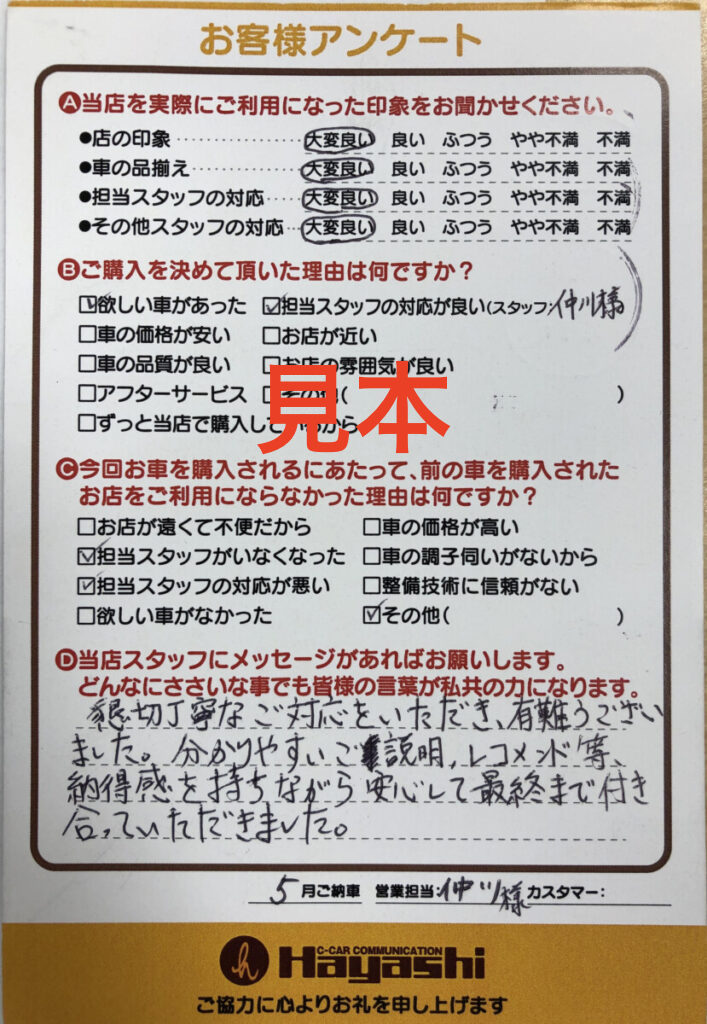 お客様アンケート
Ⓐ当店を実際にご利用になった印象をお聞かせください。
●店の印象 大変良い 良い ふつう やや不満 不満
●車の品揃え 大変良い 良い ふつう やや不満 不満
●担当スタッフの対応 大変良い 良い ふつう やや不満 不満
●その他スタッフの対応 大変良い 良い ふつう やや不満 不満
Ⓑご購入を決めて頂いた理由は何ですか？
☑欲しい車があった ☑担当スタッフの対応が良い(スタッフ:仲川様)
□車の価格が安い □お店が近い
□車の品質が良い □お店の雰囲気が良い
□アフターサービス □その他( )
□ずっと当店で購入しているから
見本
Ⓒ今回お車を購入されるにあたって、前の車を購入された
お店をご利用にならなかった理由は何ですか？
□お店が遠くて不便だから □車の価格が高い
☑担当スタッフがいなくなった □車の調子伺いがないから
☑担当スタッフの対応が悪い □整備技術に信頼がない
□欲しい車がなかった ☑その他( )
Ⓓ当店スタッフにメッセージがあればお願いします。
どんなにささいな事でも皆様の言葉が私共の力になります。
懇切丁寧なご対応をいただき、有難うござい
ました。分かりやすいご説明、レコメンド等、
納得感を持ちながら安心して最終まで付き
合っていただきました。
5月ご納車 営業担当:仲川様 カスタマー:
h C-CAR COMMUNICATION
Hayashi
ご協力に心よりお礼を申し上げます